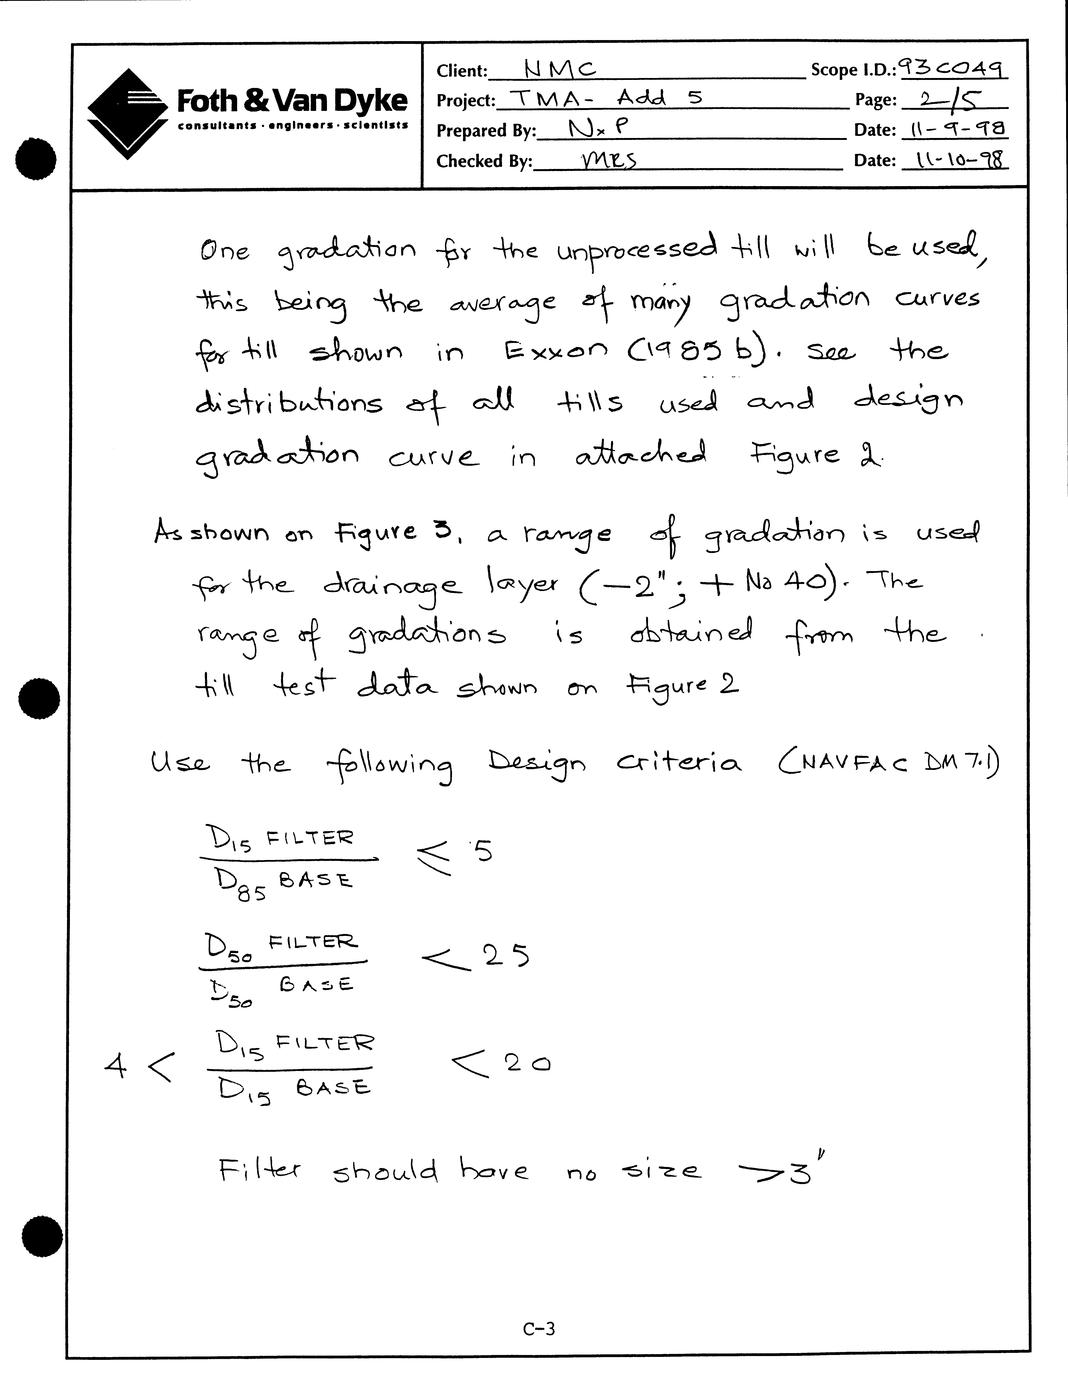 Foth & Van Dyke
consultants · engineers · scientists
Client: NMC Scope I.D.: 93C049
Project: TMA- Add 5 Page: 2/5
Prepared By: NxP Date: 11-9-98
Checked By: MRS Date: 11-10-98
One gradation for the unprocessed till will be used,
this being the average of many gradation curves
for till shown in Exxon (1985 b). See the
distributions of all tills used and design
gradation curve in attached Figure 2.
As shown on Figure 3, a range of gradation is used
for the drainage layer (-2"; + No 40). The
range of gradations is obtained from the
till test data shown on Figure 2
Use the following Design criteria (NAVFAC DM 7.1)
D15 FILTER
D85 BASE ≤ 5
D50 FILTER
D50 BASE < 25
4 < D15 FILTER
D15 BASE < 20
Filter should have no size >3"
C-3